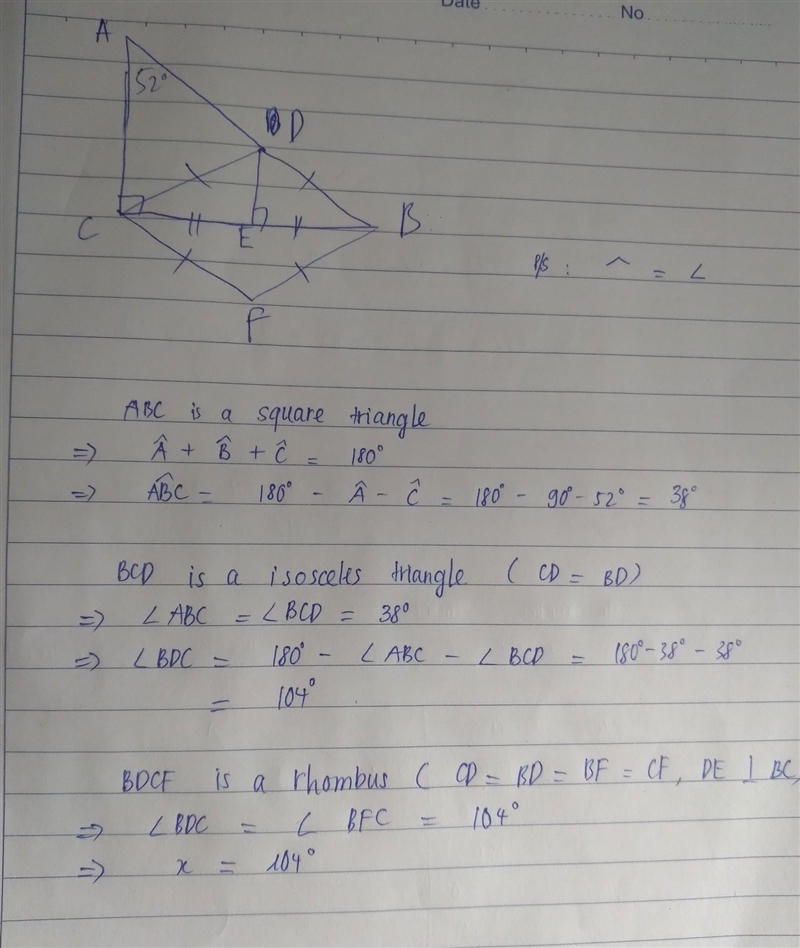 Date No
A
52°
D
C E B
P/S : ^ = ∠
F
ABC is a square triangle
=> Â + B̂ + Ĉ = 180°
=> ABC̑ = 180° - Â - Ĉ = 180° - 90° - 52° = 38°
BCD is a isosceles triangle ( CD = BD)
=> ∠ABC = ∠BCD = 38°
=> ∠BDC = 180° - ∠ABC - ∠BCD = 180° - 38° - 38°
= 104°
BDCF is a rhombus ( CD = BD = BF = CF, DE ⊥ BC,
=> ∠BDC = ∠ BFC = 104°
=> x = 104°